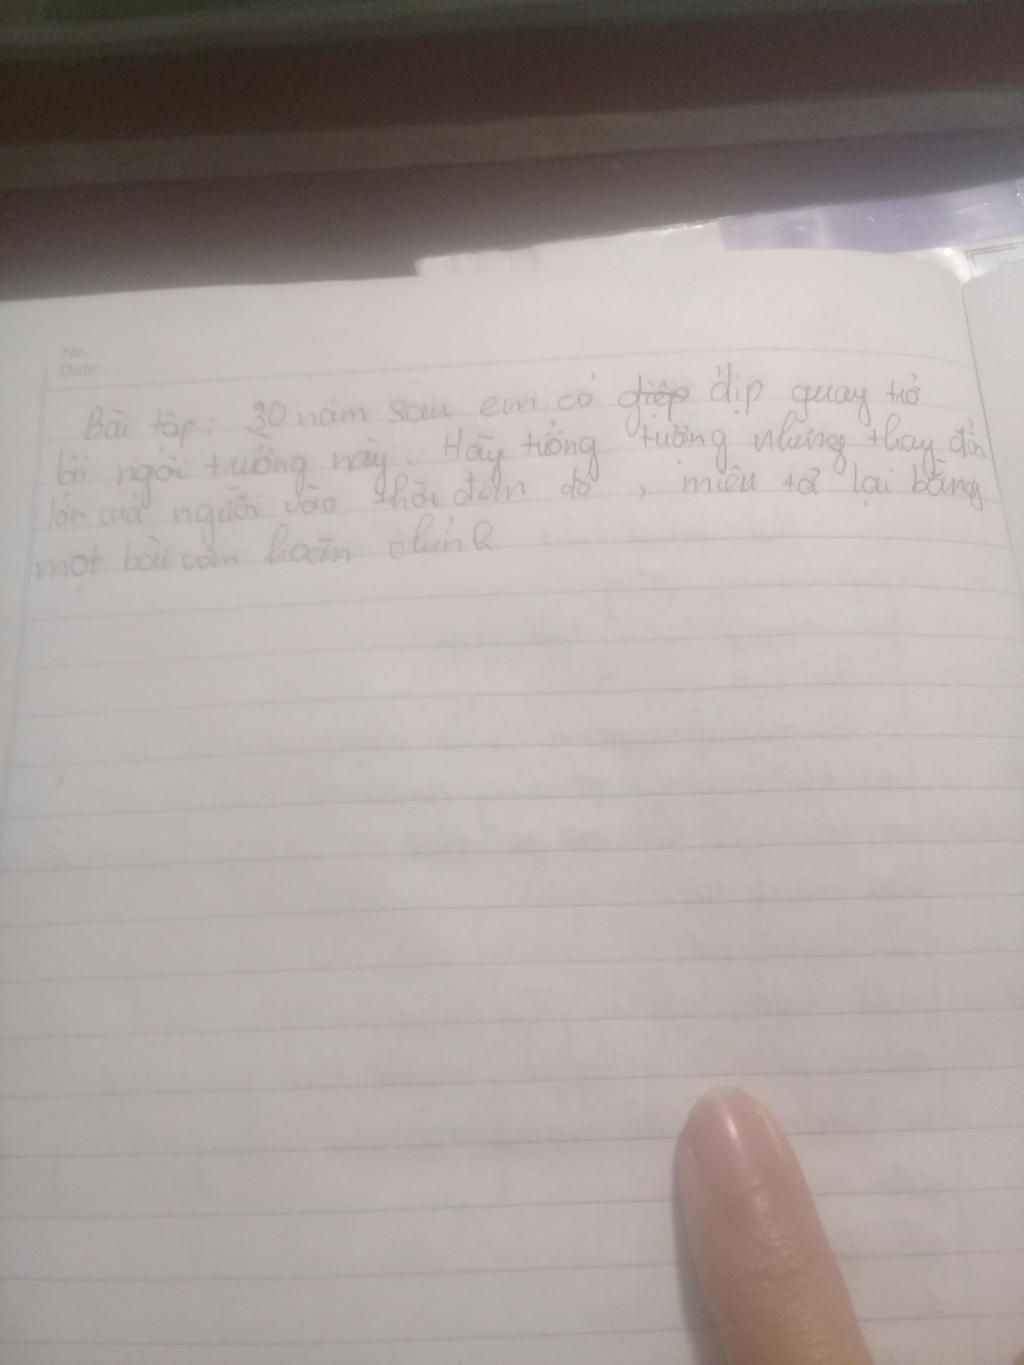 No.
Date
Bài tập: 30 năm sau em có dịp quay trở
lại ngôi trường này. Hãy tưởng tượng những thay đổi
lớn của người vào thời điểm đó, miêu tả lại bằng
một bài văn hoàn chỉnh